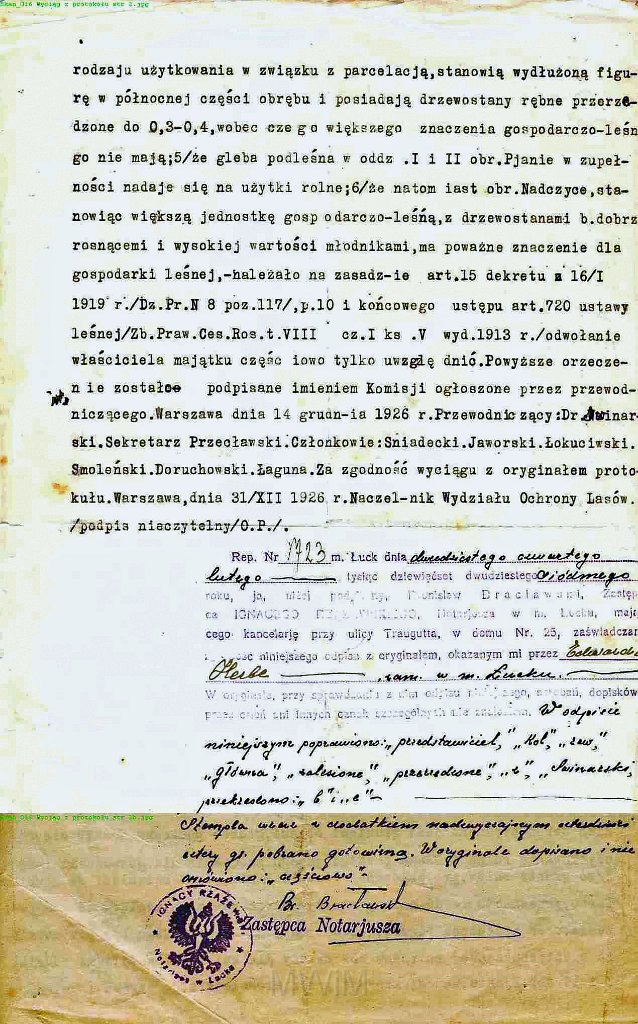 Skan_016 Wyciąg z protokołu str 2.jpg
rodzaju użytkowania w związku z parcelacją,stanowią wydłużoną figu-
rę w północnej części obrębu i posiadają drzewostany rębne przerze-
dzone do 0,3-0,4,wobec cze go większego znaczenia gospodarczo-leśn
go nie mają;5/że gleba podleśna w oddz .I i II obr.Pjanie w zupeł-
ności nadaje się na użytki rolne;6/że natom iast obr.Nadczyce,sta-
nowiąc większą jednostkę gosp odarczo-leśną,z drzewostanami b.dobrz
rosnącemi i wysokiej wartości młodnikami,ma poważne znaczenie dla
gospodarki leśnej,-należało na zasadz-ie art.15 dekretu z 16/I
1919 r./Dz.Pr.N 8 poz.117/,p.10 i końcowego ustępu art.720 ustawy
leśnej/Zb.Praw.Ces.Ros.t.VIII cz.I ks .V wyd.1913 r./odwołanie
właściciela majątku część iowo tylko uwzglę dnić.Powyższe orzecze-
n ie zostało podpisane imieniem Komisji ogłoszone przez przewod-
niczącego.Warszawa dnia 14 grudn-ia 1926 r.Przewodnic zący:Dr.Świnar-
ski.Sekretarz Przecławski.Członkowie:Sniadecki.Jaworski.Łokuciwski.
Smoleński.Doruchowski.Łaguna.Za zgodność wyciągu z oryginałem proto-
kułu.Warszawa,dnia 31/XII 1926 r.Naczel-nik Wydziału Ochrony Lasów.
/podpis nieczytelny/O.P./.
Rep. Nr 1723 m. Łuck dnia dwudziestego czwartego
lutego tysiąc dziewięćset dwudziestego siódmego
roku, ja, niżej Bronisław Bracławski, Zastęp
ca IGNACEGO RZĄŻEWSKIEGO, Notarjusza w m. Łucku, mają
cego kancelarję przy ulicy Traugutta, w domu Nr. 25, zaświadczam
niniejszego odpisu z oryginałem, okazanym mi przez Edwarda
zam. w m. Łucku.
W oryginale, przy sprawdzaniu z nim odpisu niniejszego, dopisków
innych cech szczególnych nie znalazłem. W odpisie
niniejszym poprawiono: „przedstawiciel," „Kol", „zaw,"
„główna", „zalesione", „przerzedzone", „z", „Świnarski,
przekreślono: „b" i „e" -
Stempla wraz z dodatkiem nadzwyczajnym
cztery gr. pobrano gotowizną. W oryginale dopisano i nie
omówiono: „częściowo" -
Skan_016 Wyciąg z protokołu str 2b.jpg
Br. Bracławski
Zastępca Notarjusza
IGNACY RZĄŻEWSKI
Notarjusz w Łucku
MWIM